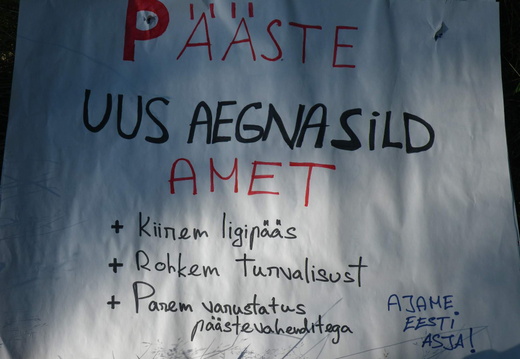 PÄÄSTE
UUS AEGNASILD
AMET
+ Kiirem ligipääs
+ Rohkem turvalisust
+ Parem varustatus
päästevahenditega
AJAME
EESTI
ASJA!